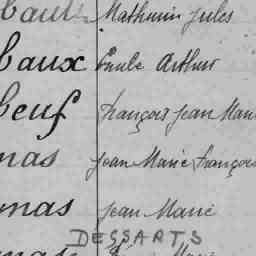 baut Mathurin Jules
baux Emile Arthur
beuf François Jean Marie
mas Jean Marie François
mas Jean Marie
DESSARTS
mas Marie